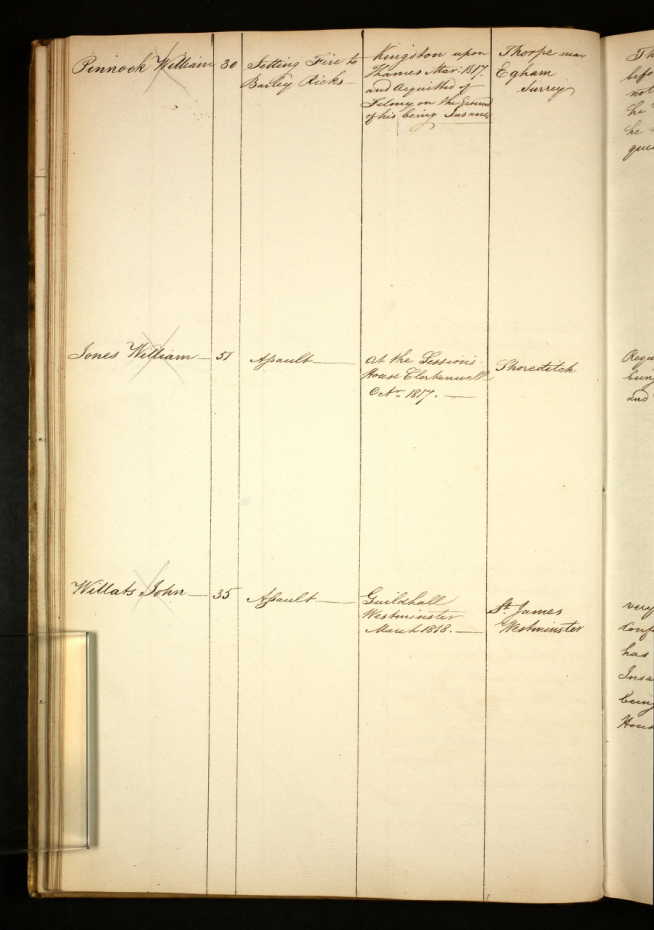 Pinnock William 30 Setting Fire to Barley Ricks
Kingston upon
Thames Mar: 1817.
and Acquitted of
Felony on the Ground
of his being Insane
Thorpe near
Egham
Surrey
Jones William 51 Assault
At the Sessions
House Clerkenwell
Octr. 1817.
Shoreditch
Willats John 35 Assault
Guildhall
Westminster
March 1818.
St. James
Westminster
Th
befo
not
he
he
que
Acqu
bein
and
very
Conf
has
Insa
being
House